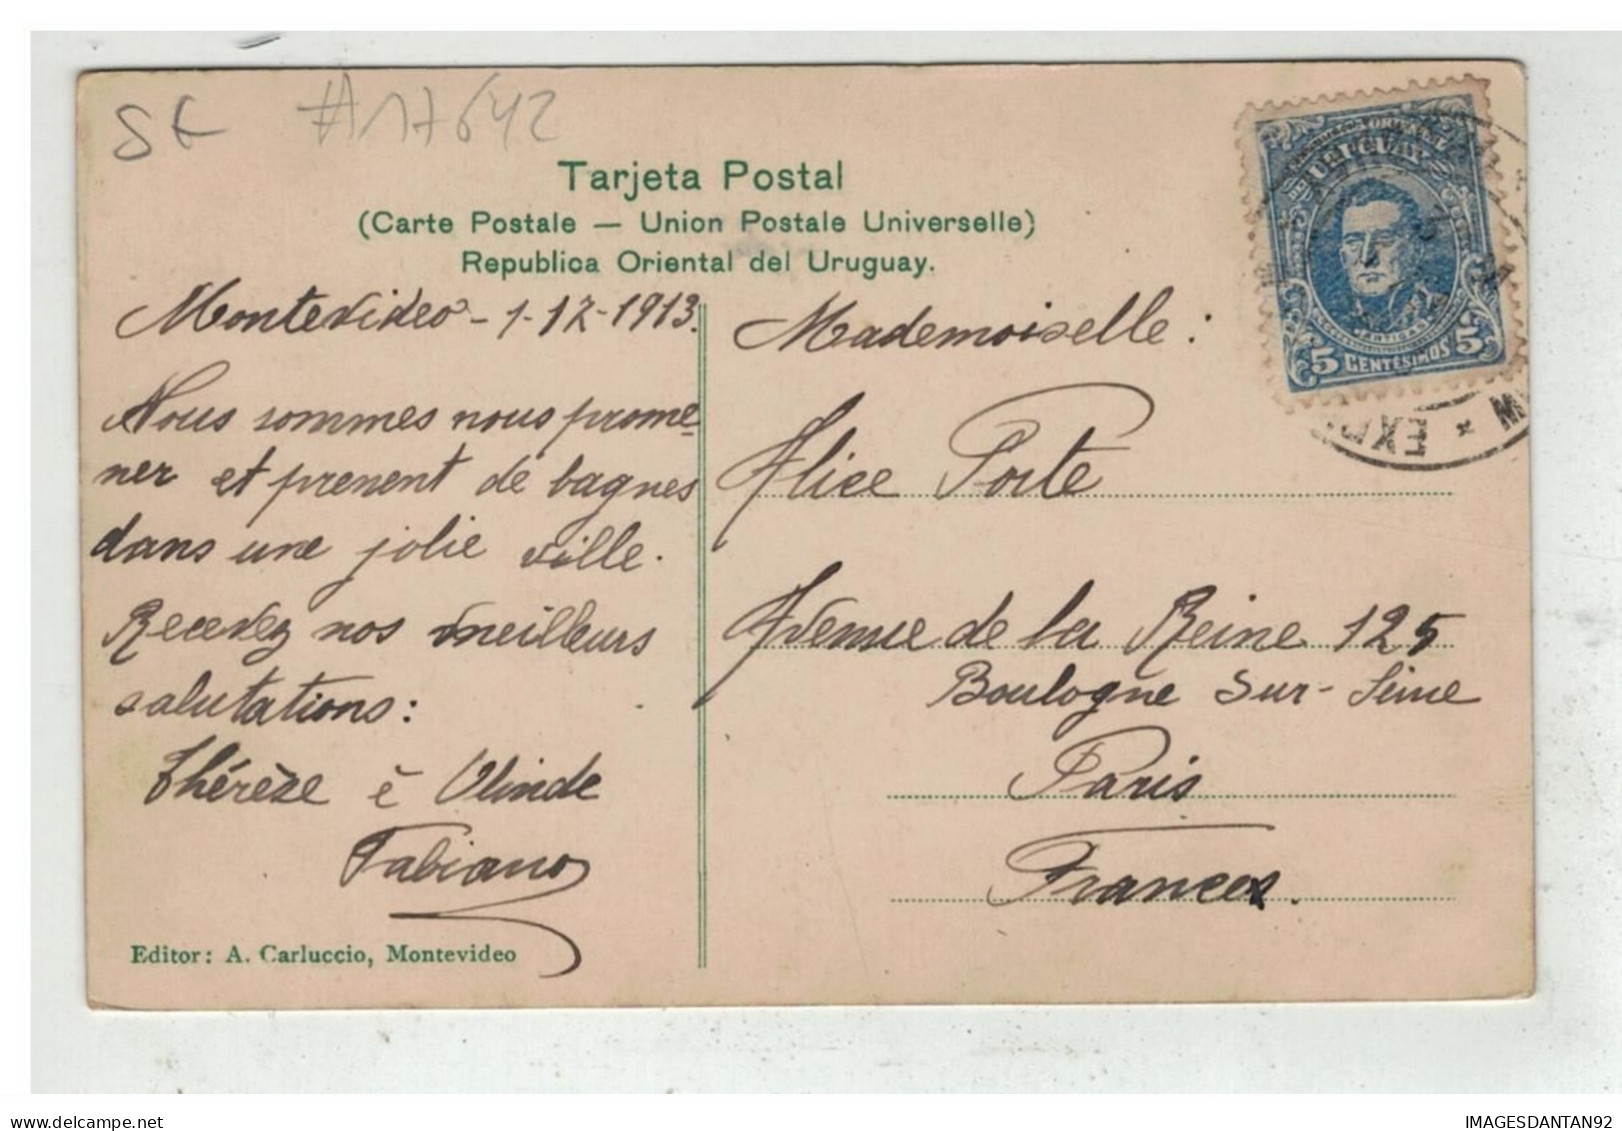 #17642
Tarjeta Postal
(Carte Postale — Union Postale Universelle)
Republica Oriental del Uruguay.
URUGUAY
ARTIGAS
5 CENTÉSIMOS 5
Montevideo - 1-12-1913.
Nous sommes nous prome-
ner et prenent de bagnes
dans une jolie ville.
Recevez nos meilleurs
salutations:
Thérèze è Olinde
Fabiano
Editor: A. Carluccio, Montevideo
Mademoiselle:
Alice Porte
Avenue de la Reine 125
Boulogne sur-Seine
Paris
France.
delcampe.net
IMAGESDANTAN92